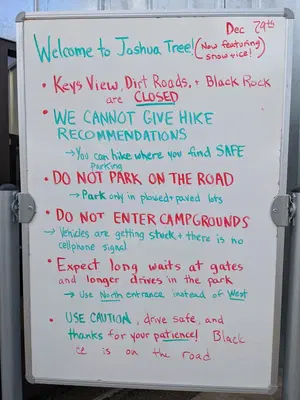 Dec 29th
Welcome to Joshua Tree! (Now featuring
snow + ice!)
• Keys View, Dirt Roads, + Black Rock
are CLOSED
• WE CANNOT GIVE HIKE
RECOMMENDATIONS
→ You can hike where you find SAFE
parking
• DO NOT PARK ON THE ROAD
→ Park only in plowed + paved lots
• DO NOT ENTER CAMPGROUNDS
→ Vehicles are getting stuck + there is no
cellphone signal
• Expect long waits at gates
and longer drives in the park
→ Use North entrance instead of West
• USE CAUTION, drive safe, and
thanks for your patience! Black
is on the road